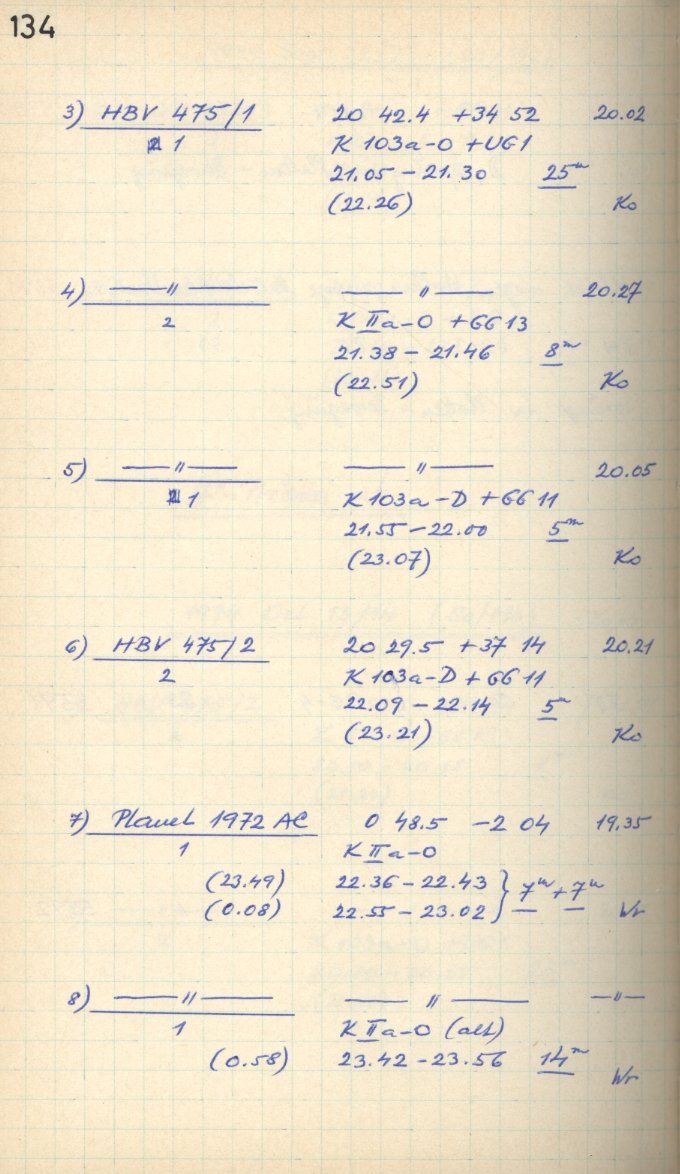 134
3) HBV 475/1 20 42.4 +34 52 20.02
1 K 103a-O + UG1
21.05 - 21.30 25m
(22.26) Ko
4) —〃— —〃— 20.27
2 K IIa-O + GG 13
21.38 - 21.46 8m
(22.51) Ko
5) —〃— —〃— 20.05
1 K 103a-D + GG 11
21.55 - 22.00 5m
(23.07) Ko
6) HBV 475/2 20 29.5 +37 14 20.21
2 K 103a-D + GG 11
22.09 - 22.14 5m
(23.21) Ko
7) Planet 1972 AC 0 48.5 -2 04 19.35
1 K IIa-O
(23.49) 22.36 - 22.43 } 7m + 7m
(0.08) 22.55 - 23.02 Wr
8) —〃— —〃— —〃—
1 K IIa-O (alt)
(0.58) 23.42 - 23.56 14m
Wr